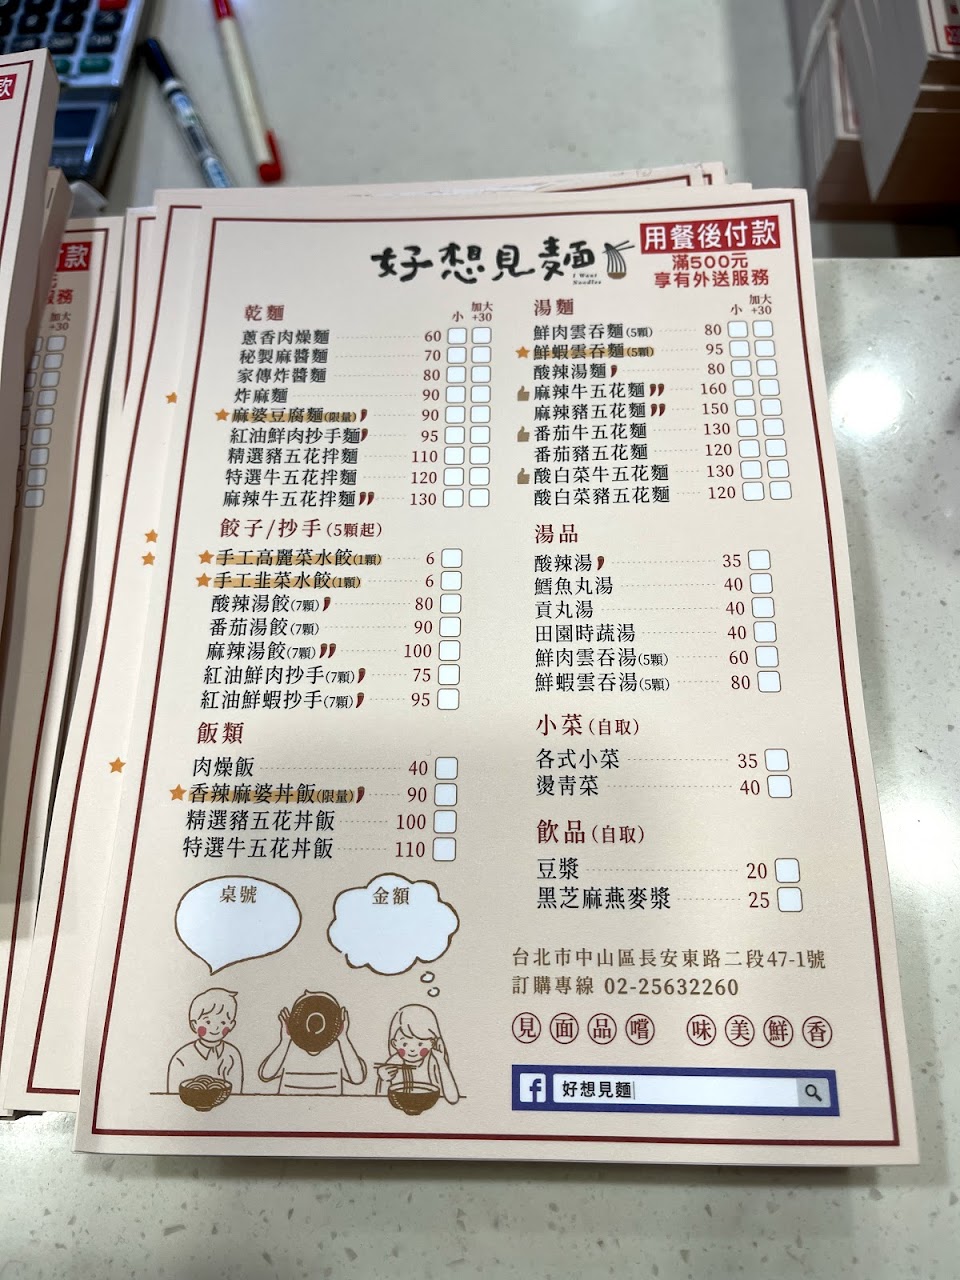 好想見麵
I Want
Noodles
用餐後付款
滿500元
享有外送服務
乾麵 小 加大+30
蔥香肉燥麵 60
秘製麻醬麵 70
家傳炸醬麵 80
炸麻麵 90
麻婆豆腐麵(限量) 90
紅油鮮肉抄手麵 95
精選豬五花拌麵 110
特選牛五花拌麵 120
麻辣牛五花拌麵 130
餃子/抄手(5顆起)
手工高麗菜水餃(1顆) 6
手工韭菜水餃(1顆) 6
酸辣湯餃(7顆) 80
番茄湯餃(7顆) 90
麻辣湯餃(7顆) 100
紅油鮮肉抄手(7顆) 75
紅油鮮蝦抄手(7顆) 95
飯類
肉燥飯 40
香辣麻婆丼飯(限量) 90
精選豬五花丼飯 100
特選牛五花丼飯 110
桌號
金額
湯麵 小 加大+30
鮮肉雲吞麵(5顆) 80
鮮蝦雲吞麵(5顆) 95
酸辣湯麵 80
麻辣牛五花麵 160
麻辣豬五花麵 150
番茄牛五花麵 130
番茄豬五花麵 120
酸白菜牛五花麵 130
酸白菜豬五花麵 120
湯品
酸辣湯 35
鱈魚丸湯 40
貢丸湯 40
田園時蔬湯 40
鮮肉雲吞湯(5顆) 60
鮮蝦雲吞湯(5顆) 80
小菜(自取)
各式小菜 35
燙青菜 40
飲品(自取)
豆漿 20
黑芝麻燕麥漿 25
台北市中山區長安東路二段47-1號
訂購專線 02-25632260
見面品嚐 味美鮮香
f 好想見麵
款
付款
元
服務
加大
+30